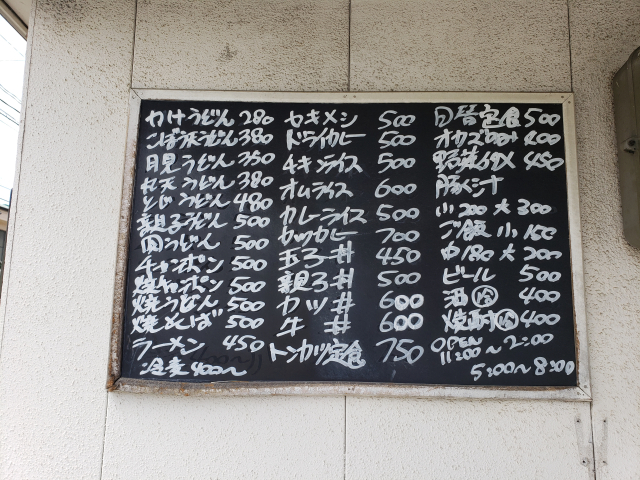 かけうどん 280
ごぼう天うどん 380
月見うどん 330
丸天うどん 380
とじうどん 480
親子うどん 500
肉うどん 500
チャンポン 500
焼チャンポン 500
焼うどん 500
焼そば 500
ラーメン 450
冷麦 400〜
ヤキメシ 500
ドライカレー 500
チキンライス 500
オムライス 600
カレーライス 500
カツカレー 700
玉子丼 450
親子丼 500
カツ丼 600
牛丼 600
トンカツ定食 750
日替定食 500
オカズのみ 400
野菜イタメ 450
豚汁
小 200 大 300
ご飯 小 150
中 180 大 200
ビール 500
酒 400
焼酎 400
OPEN
11:00〜2:00
5:00〜8:00